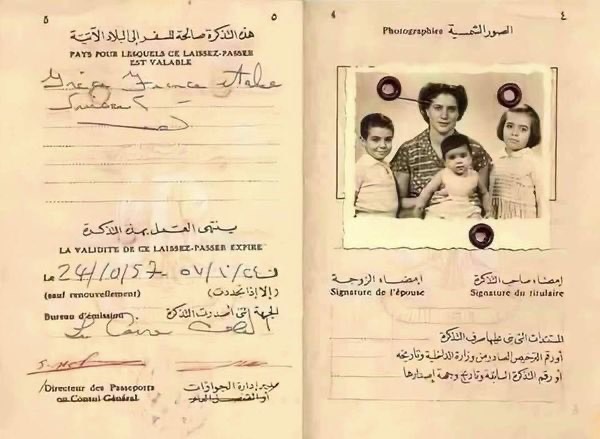 ٥ ٥
هذه التذكرة صالحة للسفر إلى البلاد الآتية
PAYS POUR LESQUELS CE LAISSEZ-PASSER
EST VALABLE
Grèce France Italie
Suisse
ينتهى العمل بهذه التذكرة
LA VALIDITE DE CE LAISSEZ-PASSER EXPIRE
Le 24/10/57
(sauf renouvellement) (إلا إذا تجددت)
Bureau d'émission الجهة التى أصدرت التذكرة
Le Caire
Directeur des Passeports مدير إدارة الجوازات
ou Consul Général. أو القنصل العام
٤ ٤
Photographies الصور الشمسية
إمضاء الزوجة إمضاء صاحب التذكرة
Signature de l'épouse Signature du titulaire
المستندات التى بنى عليها صرف التذكرة
أو رقم الترخيص الصادر من وزارة الداخلية وتاريخه
أو رقم التذكرة السابقة وتاريخ وجهة إصدارها